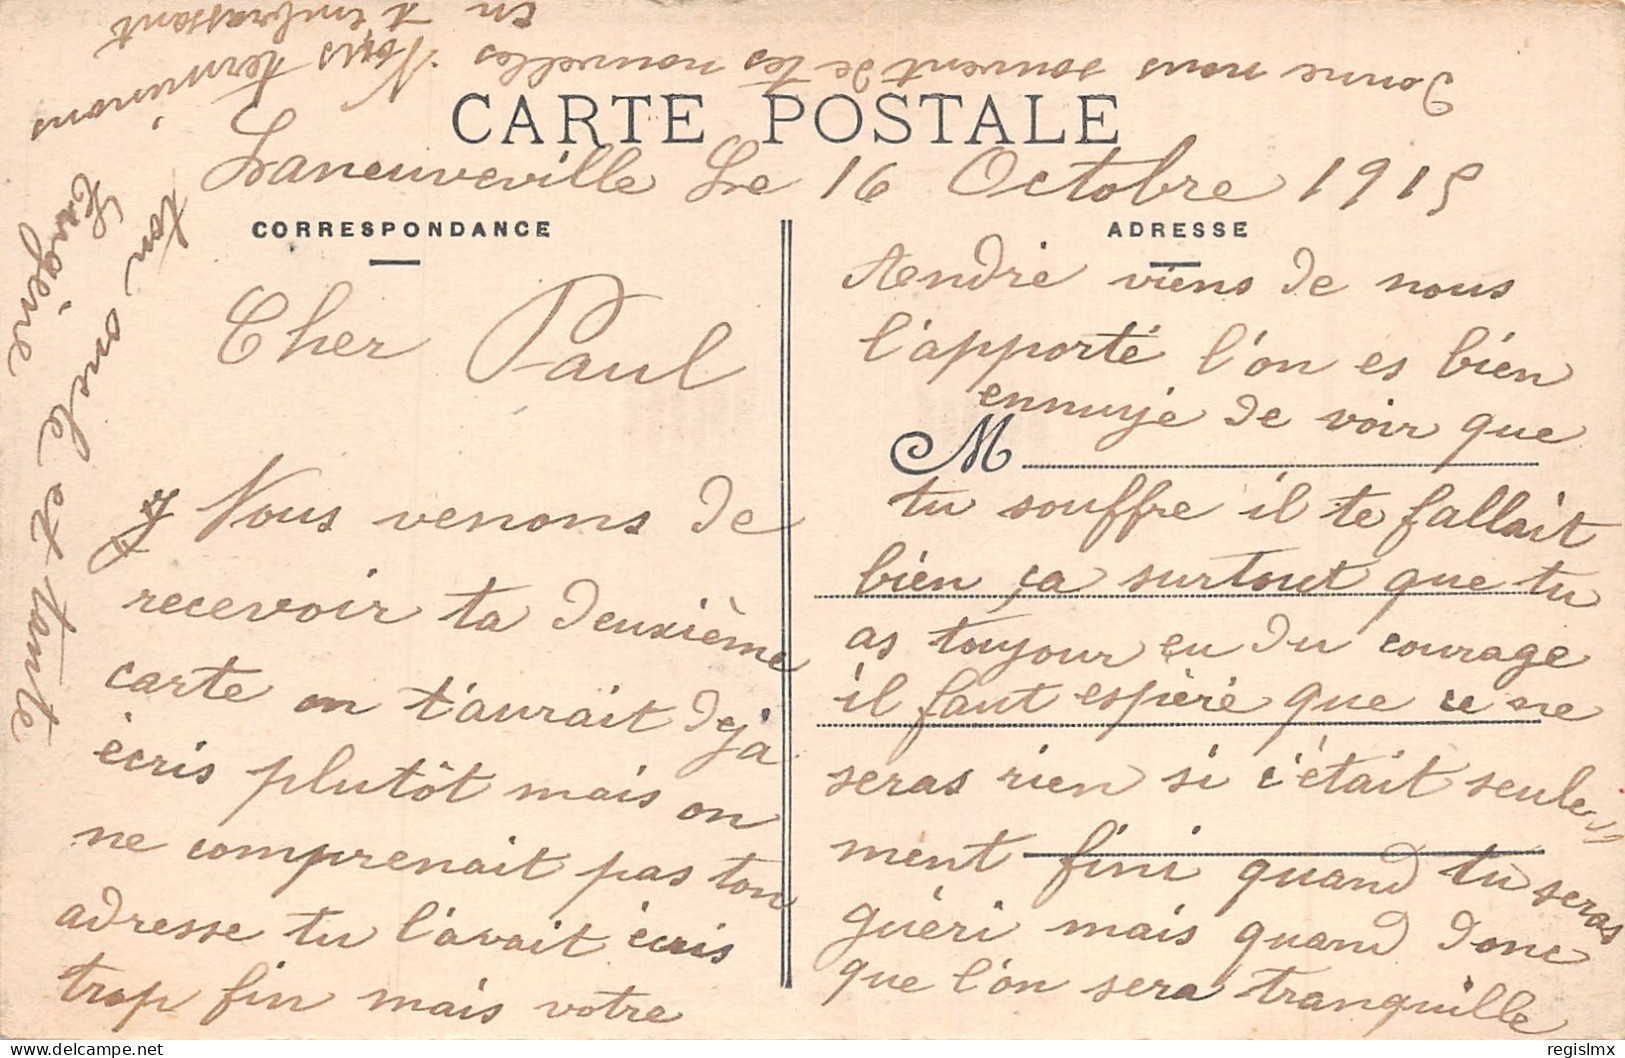 CARTE POSTALE
Laneuveville Le 16 Octobre 1915
CORRESPONDANCE
Cher Paul
Nous venons de
recevoir ta deuxième
carte on t'aurait deja
écris plutôt mais on
ne comprenait pas ton
adresse tu l'avait écris
trop fin mais votre
ADRESSE
Andre viens de nous
l'apporté l'on es bien
ennuye de voir que
M
tu souffre il te fallait
bien ça surtout que tu
as toujour eu du courage
il faut espèré que ce ne
seras rien si c'était seule
ment fini quand tu seras
guéri mais quand donc
que l'on sera tranquille
Donne nous souvent de tes nouvelles Nous terminons
en t'embrassant
ton oncle et tante
Eugène
regislmx